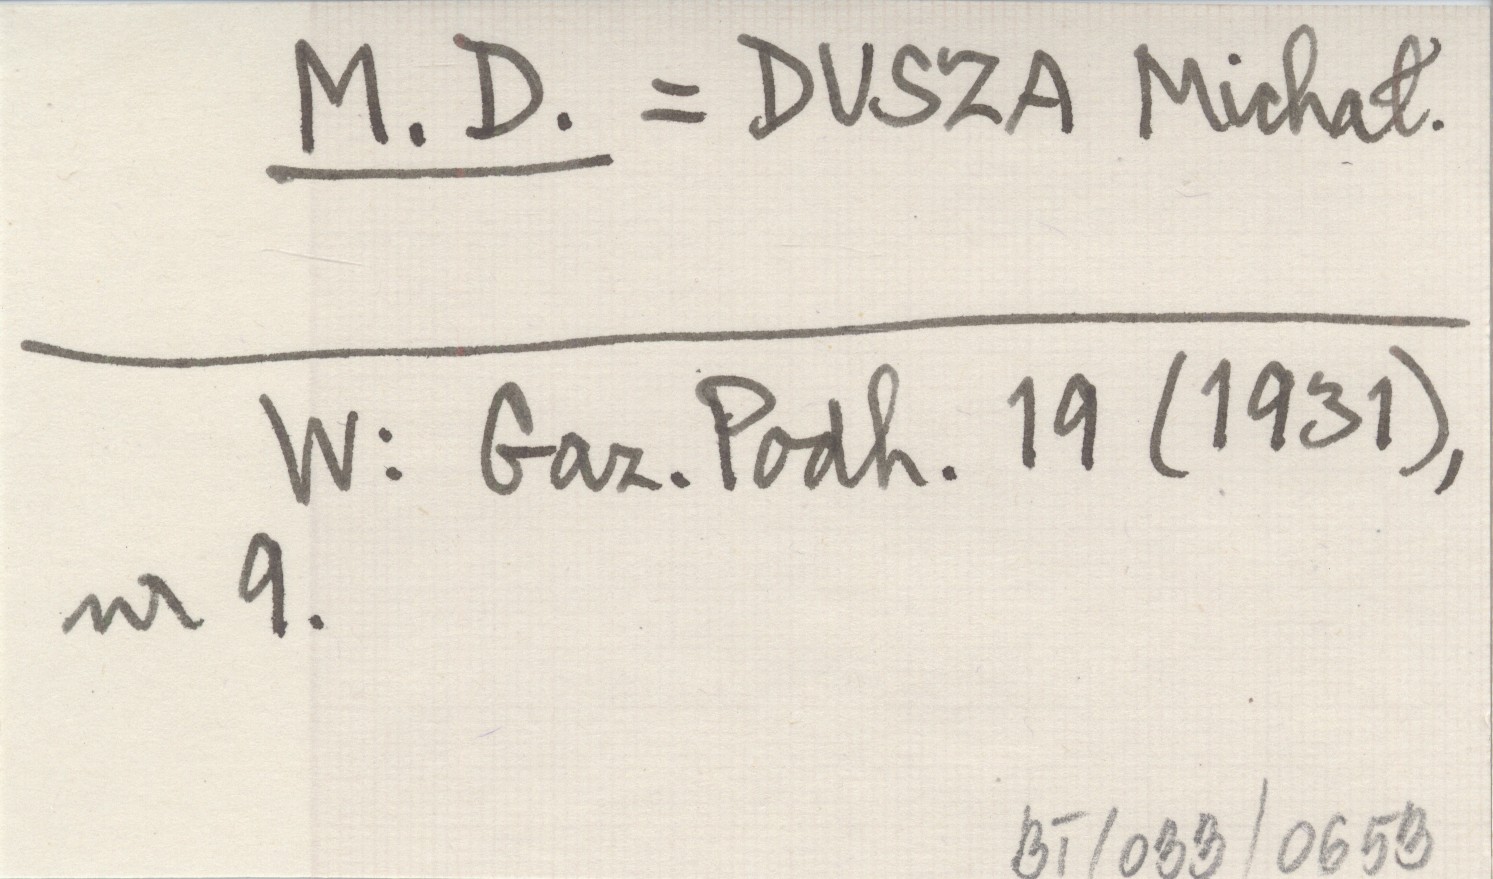 M. D. = DUSZA Michał.
W: Gaz. Podh. 19 (1931),
nr 9.
BT/033/0653